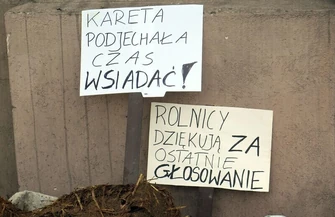 KARETA
PODJECHAŁA
CZAS
WSIADAĆ!
ROLNICY
DZIĘKUJĄ ZA
OSTATNIE
GŁOSOWANIE